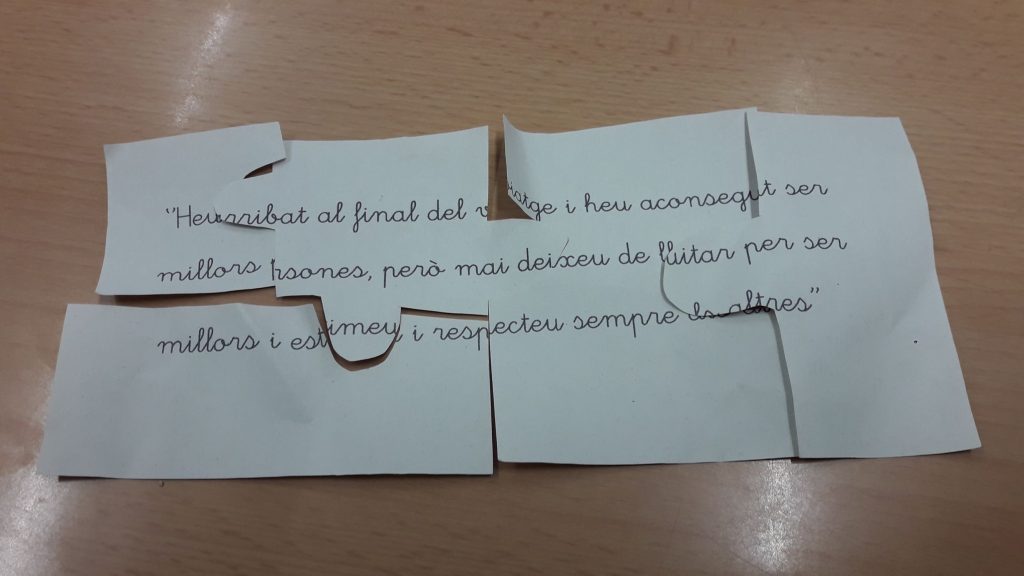 "Heu arribat al final del viatge i heu aconseguit ser
millors persones, però mai deixeu de lluitar per ser
millors i estimeu i respecteu sempre els altres"